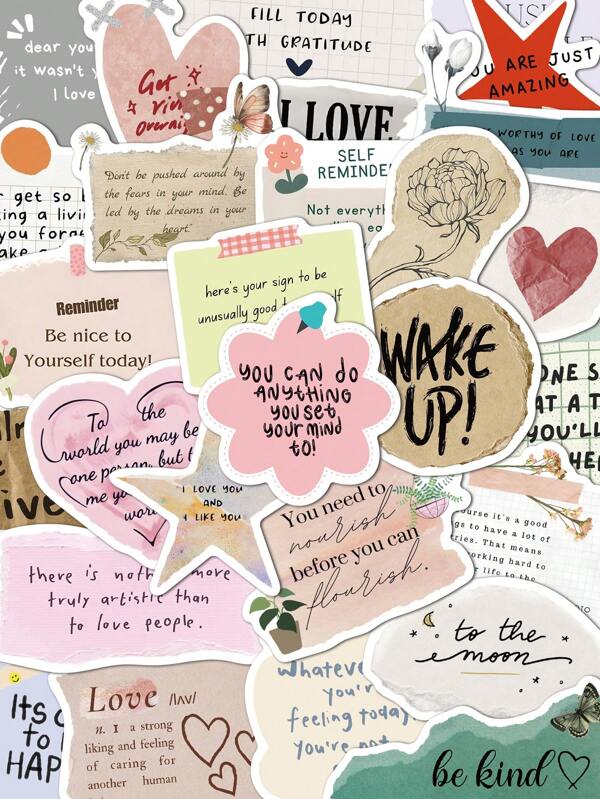 dear you
it wasn't
I love
Get
FILL TODAY
TH GRATITUDE
I LOVE
YOU ARE JUST
AMAZING
WORTHY OF LOVE
AS YOU ARE
"Don't be pushed around by
the fears in your mind. Be
led by the dreams in your
heart."
SELF
REMINDER
Not everyth
get so
ing a livi
you forge
here's your sign to be
unusually good
Reminder
Be nice to
Yourself today!
YOU CAN DO
ANYTHING
YOU SET
YOUR MIND
TO!
WAKE
UP!
ONE S
AT A T
YOU'LL
HE
To the
world you may be
one person, but t
me yo
wor
I LOVE YOU
AND
I LIKE YOU
You need to
nourish
before you can
flourish.
ourse it's a good
gs to have a lot of
ries. That means
working hard to
r life to the
there is noth more
truly artistic than
to love people.
to the
moon
Love /lʌv/
n. 1 a strong
liking and feeling
of caring for
another human
Whateve
you're
feeling today.
you're not
Its
to
HAP
be kind